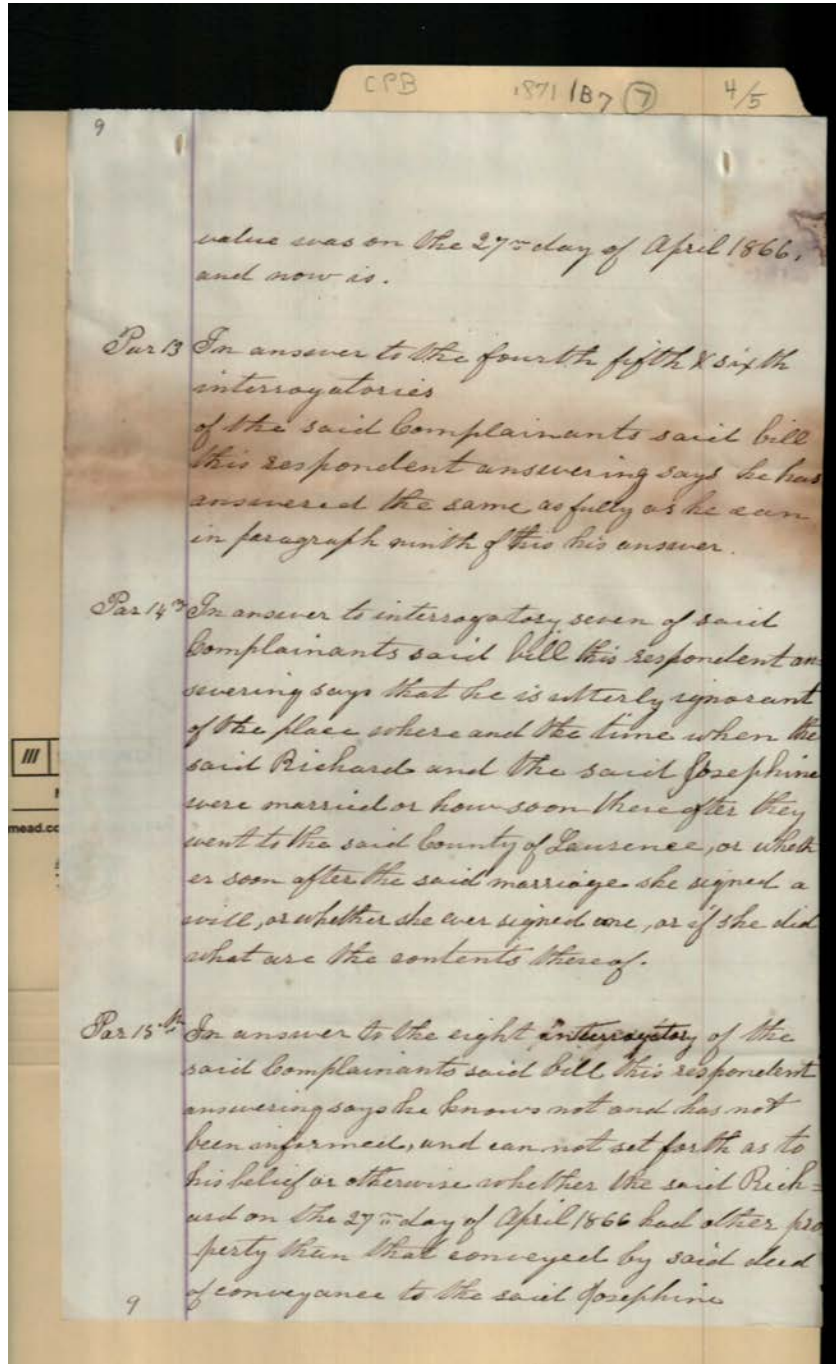 CPB 1871/B7 (7) 4/5
9
value was on the 27th day of April 1866,
and now is.
Par 13 In answer to the fourth fifth & sixth
interrogatories
of the said Complainants said bill
this respondent answering says he has
answered the same as fully as he can
in paragraph ninth of this his answer.
Par 14th In answer to interrogatory seven of said
Complainants said bill this respondent an-
swering says that he is utterly ignorant
of the place where and the time when the
said Richard and the said Josephine
were married or how soon thereafter they
went to the said County of Laurence, or wheth
er soon after the said marriage she signed a
will, or whether she ever signed one, or if she did
what are the contents thereof.
Par 15th In answer to the eight interrogatory of the
said Complainants said bill this respondent
answering says he knows not and has not
been informed, and can not set forth as to
his belief or otherwise whether the said Rich=
ard on the 27th day of April 1866 had other pro
perty than that conveyed by said deed
of conveyance to the said Josephine
9
mead.co